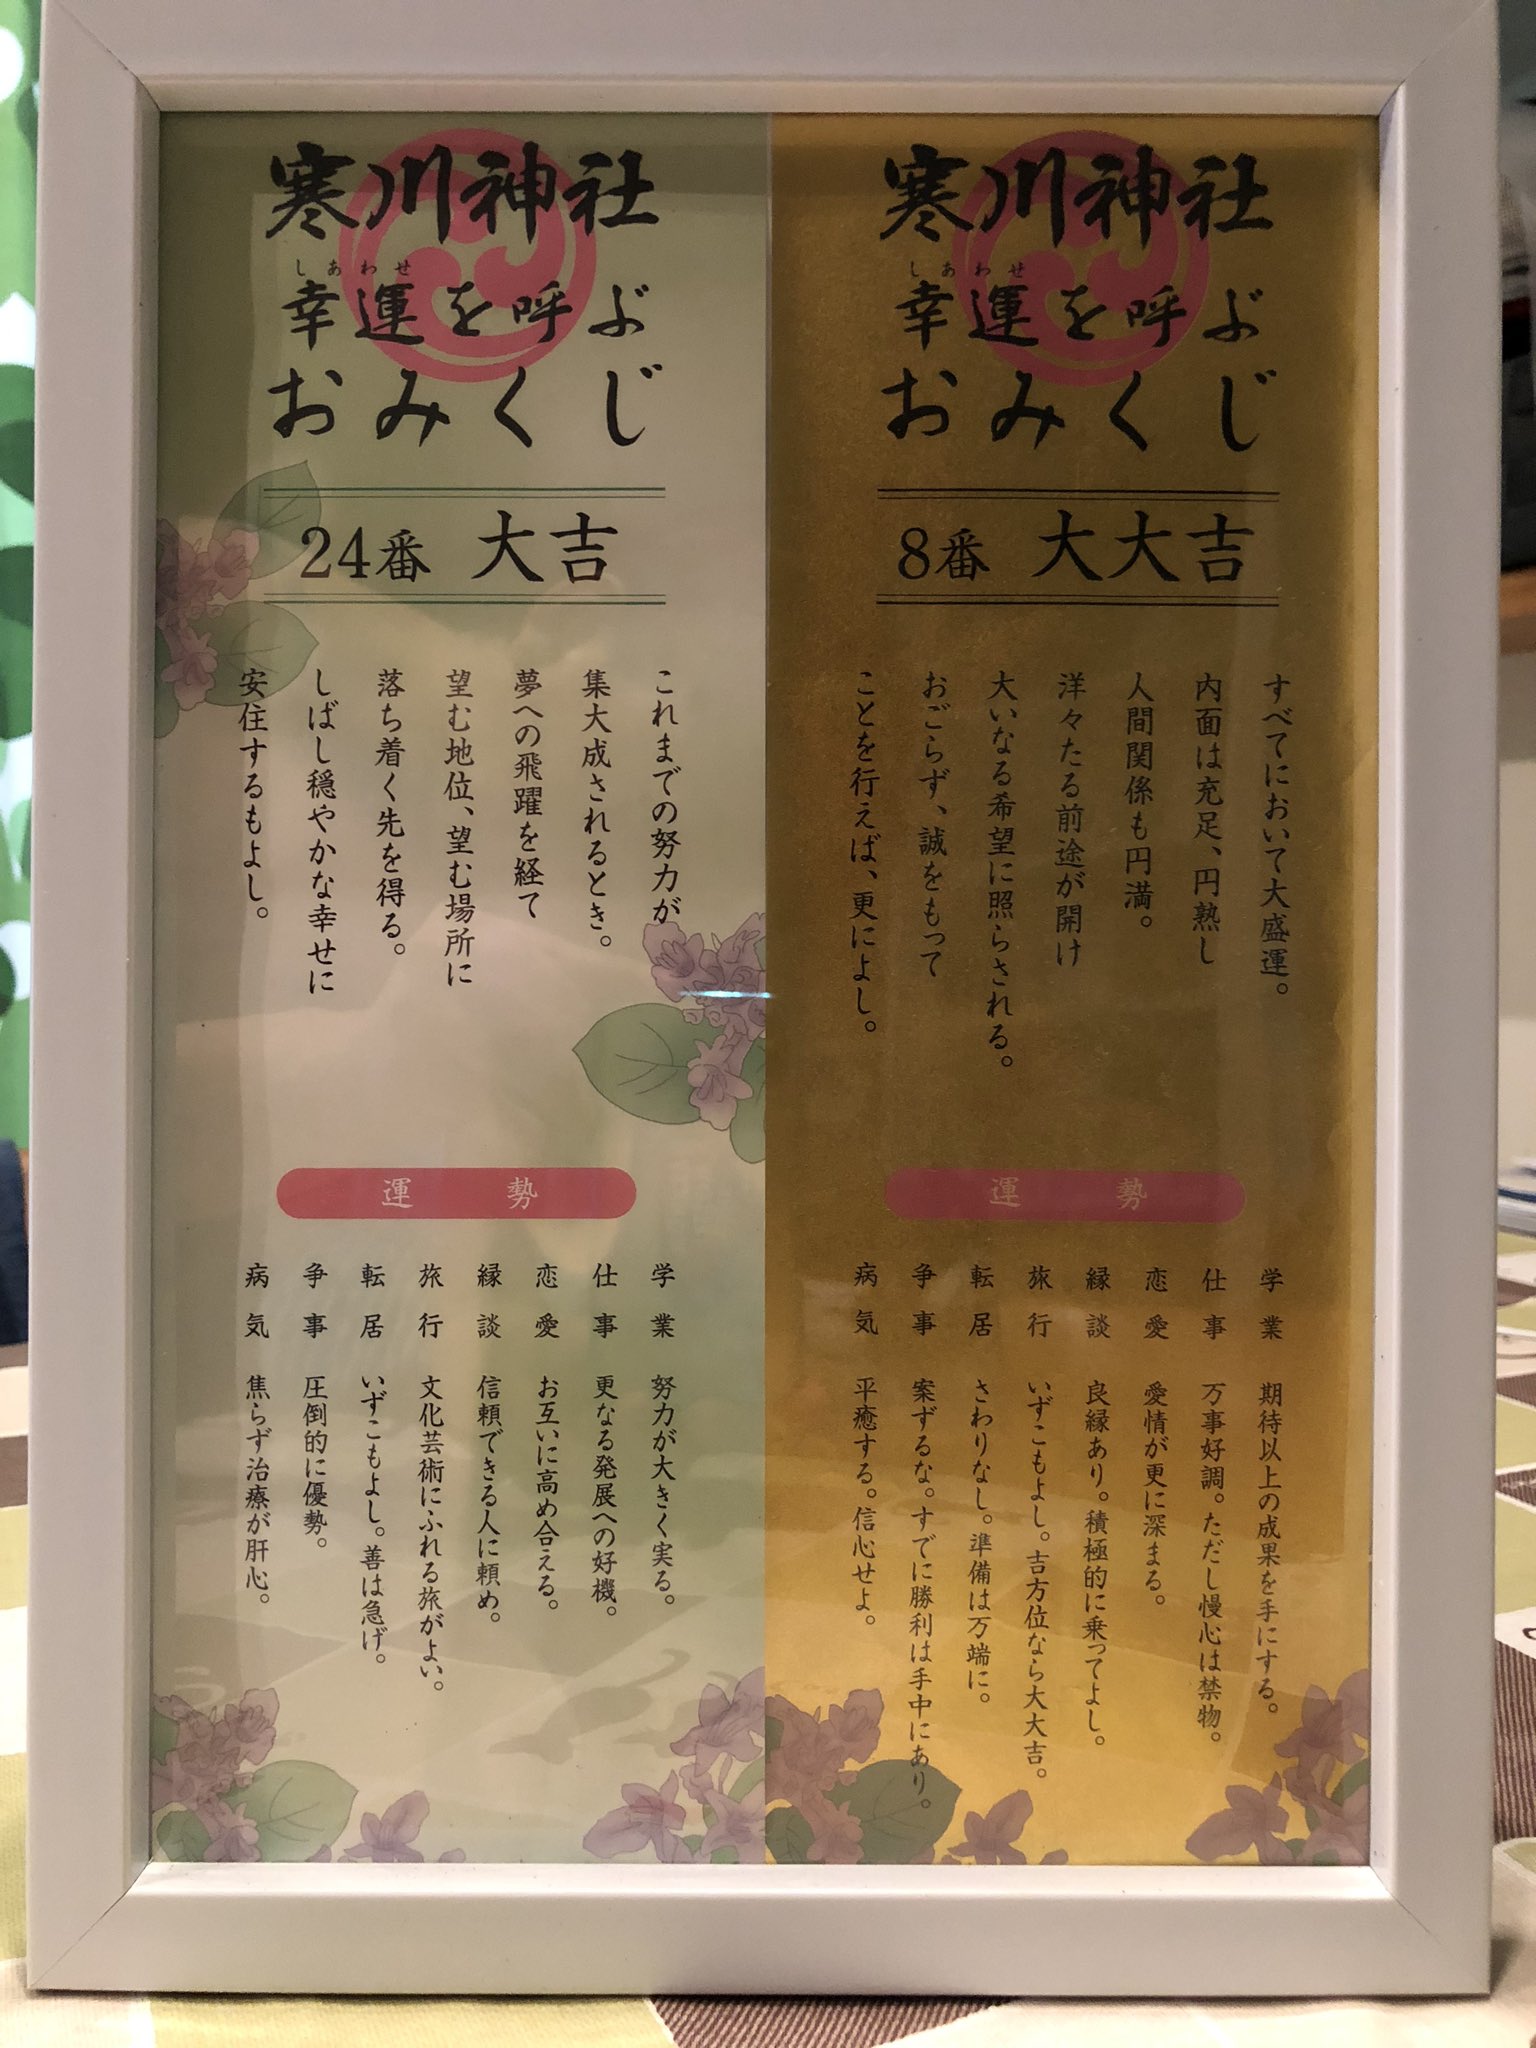 寒川神社
しあわせ
幸運を呼ぶ
おみくじ
24番 大吉
これまでの努力が
集大成されるとき。
夢への飛躍を経て
望む地位、望む場所に
落ち着く先を得る。
しばし穏やかな幸せに
安住するもよし。
運勢
学業 努力が大きく実る。
仕事 更なる発展への好機。
恋愛 お互いに高め合える。
縁談 信頼できる人に頼め。
旅行 文化芸術にふれる旅がよい。
転居 いずこもよし。善は急げ。
争事 圧倒的に優勢。
病気 焦らず治療が肝心。
寒川神社
しあわせ
幸運を呼ぶ
おみくじ
8番 大大吉
すべてにおいて大盛運。
内面は充足、円熟し
人間関係も円満。
洋々たる前途が開け
大いなる希望に照らされる。
おごらず、誠をもって
ことを行えば、更によし。
運勢
学業 期待以上の成果を手にする。
仕事 万事好調。ただし慢心は禁物。
恋愛 愛情が更に深まる。
縁談 良縁あり。積極的に乗ってよし。
旅行 いずこもよし。吉方位なら大大吉。
転居 さわりなし。準備は万端に。
争事 案ずるな。すでに勝利は手中にあり。
病気 平癒する。信心せよ。